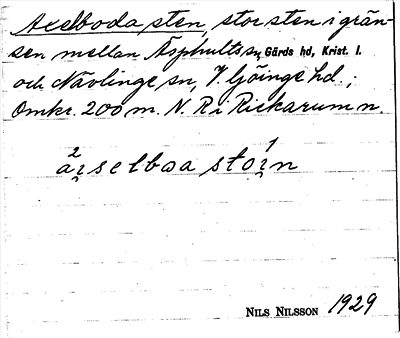 Axelboda sten, stor sten i grän-
sen mellan Äsphults sn, Gärds hd, Krist. l.
och Nävlinge sn, V. Göinge hd.;
Omkr. 200 m. N. R i Rickarum n.
2 1
aɪ̯selboa stoɪ̯n
NILS NILSSON 1929